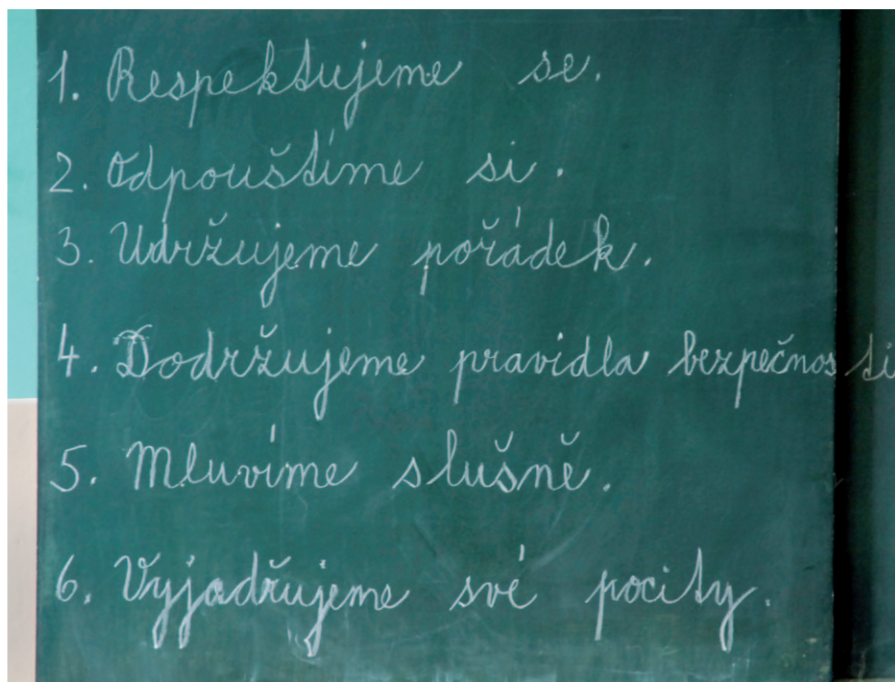 1. Respektujeme se.
2. Odpouštíme si.
3. Udržujeme pořádek.
4. Dodržujeme pravidla bezpečnosti
5. Mluvíme slušně.
6. Vyjadřujeme své pocity.